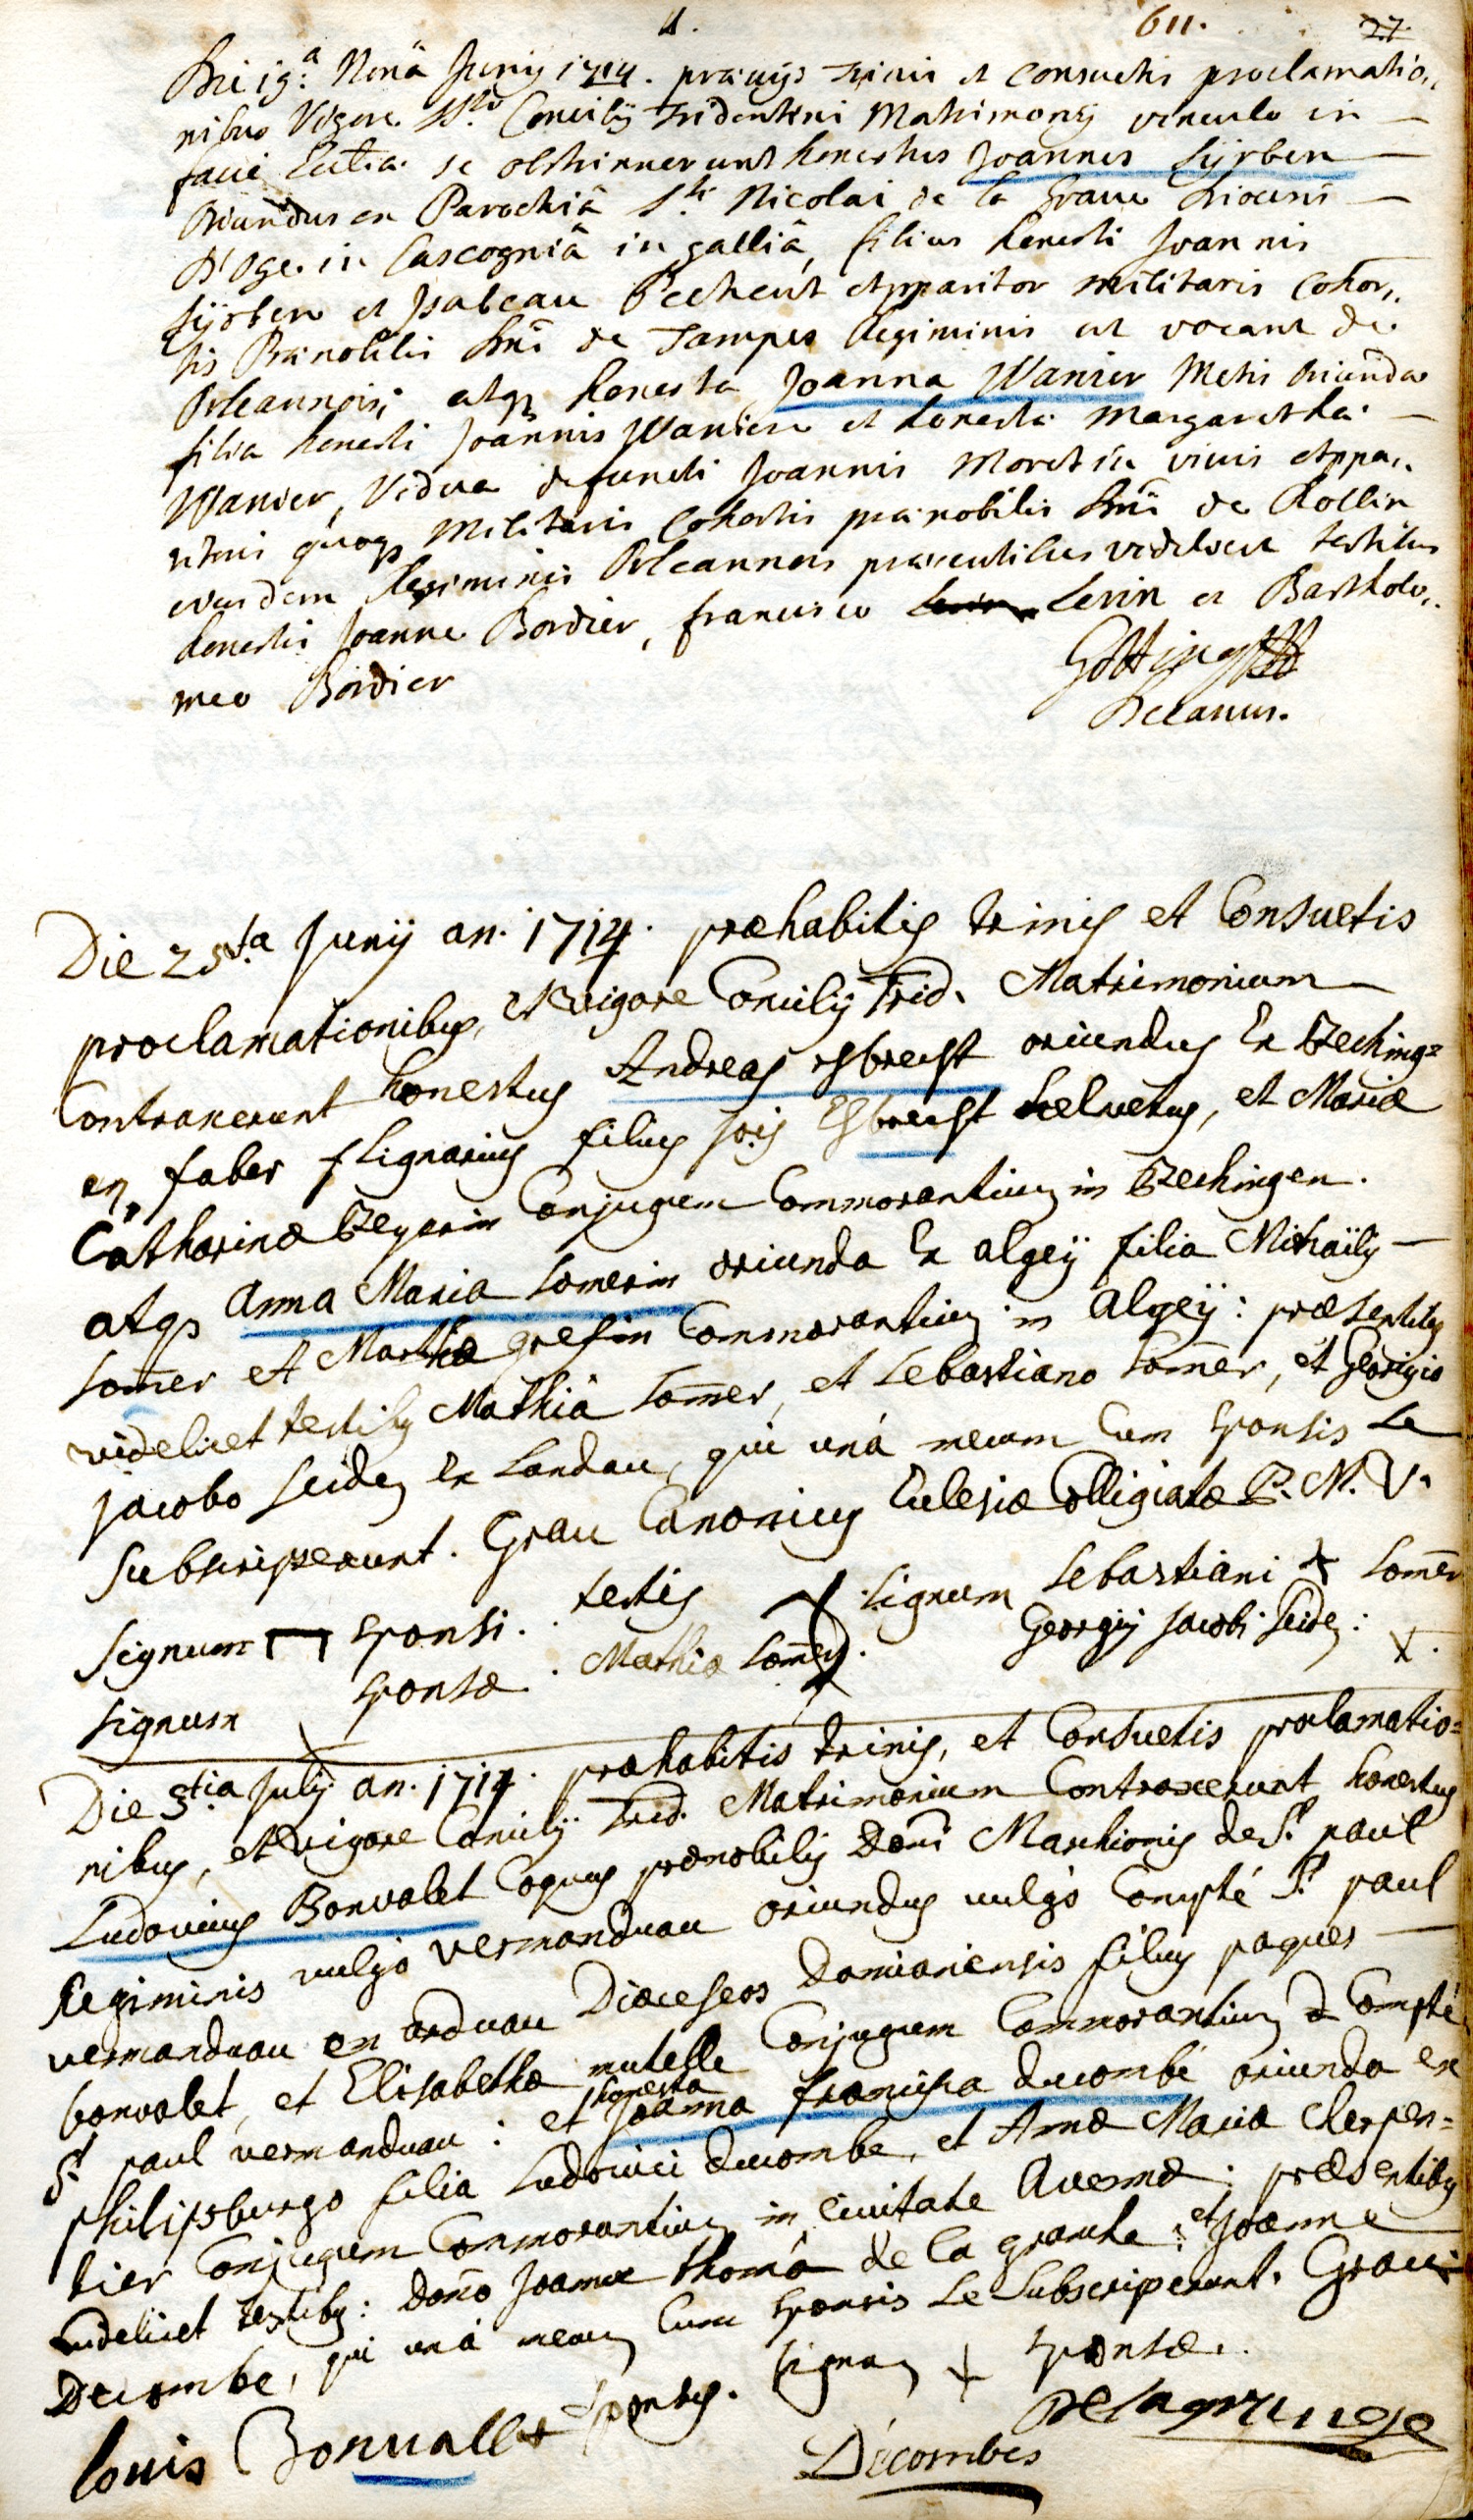 4. 611. 27.
Die 19.a Nonâ Junij 1714. praevijs trinis et consuetis proclamatio„
nibus Vigore Sti Concilij Tridentini Matrimonij vinculo in
facie Eccl̄ia se obstrinxerunt honestus Joannes Lyrben
Oriundus ex Parochiâ Sti Nicolai de la Grave Diocesis
D'oge in Gascogniâ in galliâ, filius honesti Joannis
Lyrben et Isabeau Pechent Apparitor militaris Cohor„
tis Praenobilis Dn̄i de Tampes Regiminis ut vocant de
Orleannois; atqз honesta Joanna Wanier Metis Oriunda
filia honesti Joannis Wanier et honesta Margaretha
Wanier, Vidua defuncti Joannis Moret in vivis Appa„
ritoris quoqз Militaris Cohortis praenobilis Dn̄i de Rollin
eiusdem Regiminis Orleannois praesentibus videlicet testibus
honestis Joanne Bordier, francisco Levin et Bartholo„
meo Bordier
Decanus.
Die 25ta Junij an. 1714. praehabitis trinis et Consuetis
proclamationibus, et vigore Concilij Trid. Matrimonium
Contraxerunt honestus Andreas Esbrecht oriundus Ex Bzeching=
en, faber Lignarius filius Jois Esbrecht helvetus, et Mariae
Catharinae Conjugum Commorantium in Bzechingen.
atqз Anna Maria Lomerin oriunda Ex algeÿ filia Michaëlis
Lom̄er et Marthae grefin Commorantium in Algeÿ: praesentibus
videlicet testibus Mathiâ Lom̄er, et Sebastiano Lom̄er, et Georgio
Jacobo Seidez Ex Landau, qui unà mecum Cum sponsis se
Subscripserunt. Grau Canonicus Ecclesiae Colligiatae B. M. V.
Signum sponsi. testis Signum Sebastiani + Lom̄er
Signum sponsae. Mathiae Lom̄er. Georgij Jacobi Seidez: x.
Die 3tia Julij an. 1714. praehabitis trinis, et Consuetis proclamatio=
nibus, et vigore Concilij Trid. Matrimonium Contraxerunt honestus
Ludovicus Bonvalet Coquus praenobilis Dom̄i Marchionis de St paul
Regiminis vulgò vermanduau oriundus vulgò Compté St paul
vermanduau en arduau Dioeceseos Damianensis filius paques
bonvalet, et Elisabetha mutelle Conjugum Commorantium à Compté
St paul vermanduau: et honesta Joanna francisca ducombé oriunda ex
philipsburgo filia Ludovici ducombe, et Annae Maria Cherpen=
tier Conjugum Commorantium in Civitate Avernae; praesentibus
videlicet testibus: domō Joanne thomâ de la granche, et Joanne
Decombe, qui unà mecum Cum sponsis se Subscripserunt. Grau
louis Bonuallet sponsus. Signum + sponsae.
Decombes Delagrange